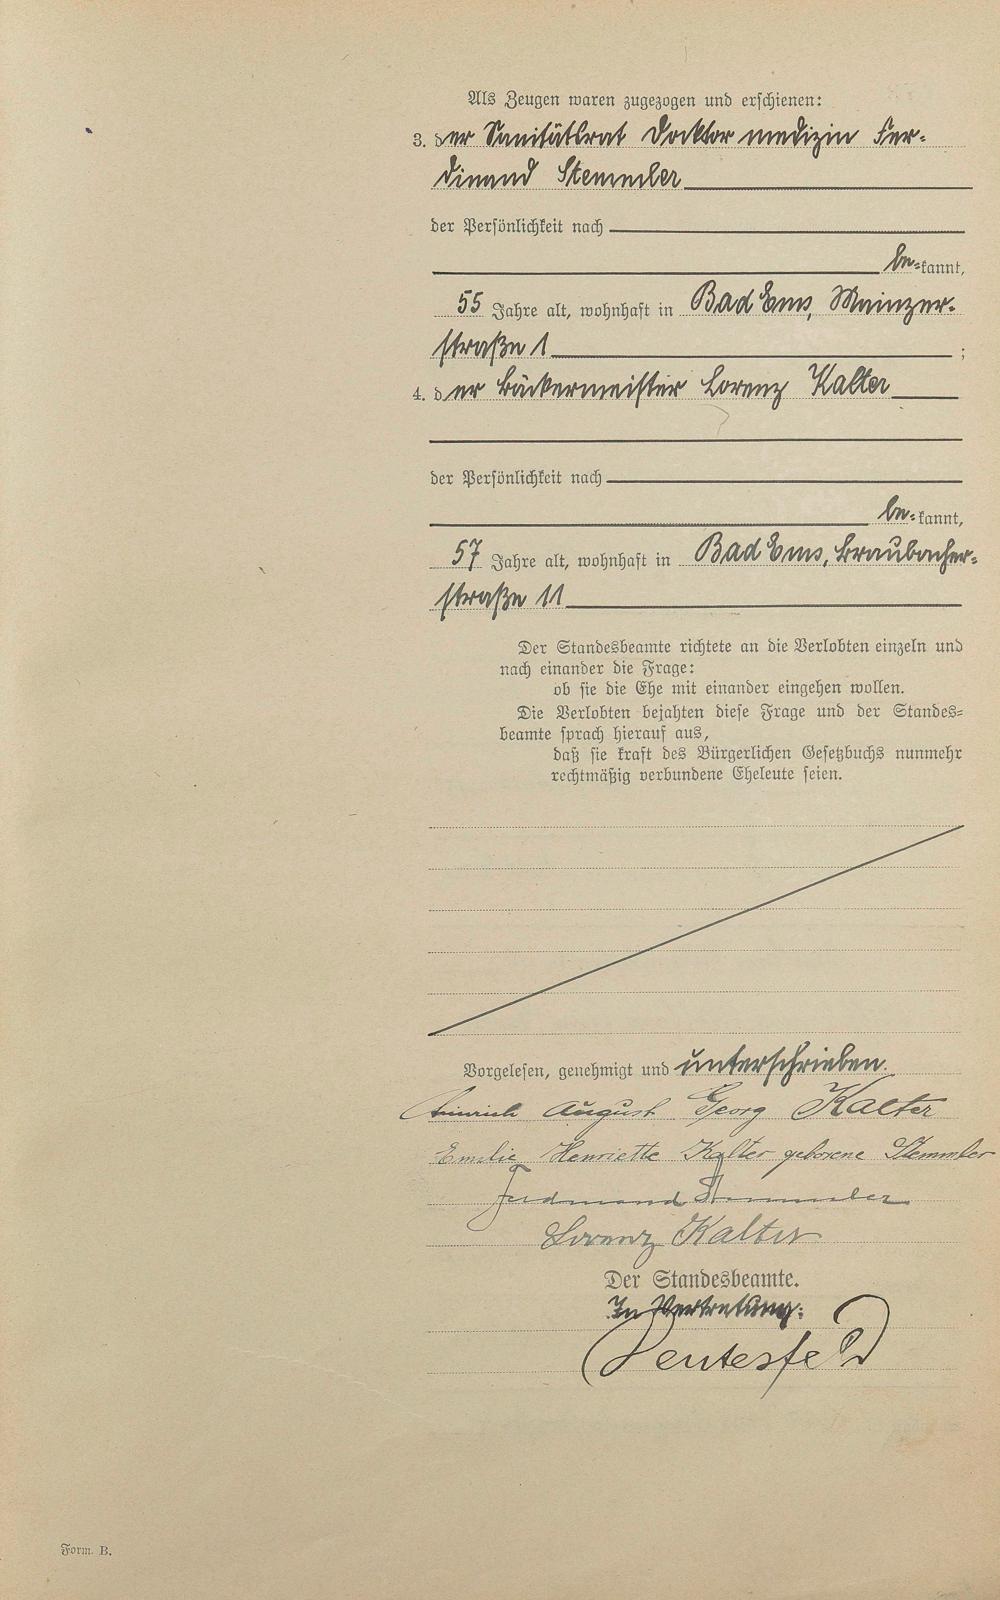 Als Zeugen waren zugezogen und erschienen:
3. der Sanitätsrat Docktor medizin Fer-
dinand Stemmler
der Persönlichkeit nach
be-kannt,
55 Jahre alt, wohnhaft in Bad Ems, Mainzer-
straße 1 ;
4. der Bäckermeister Lorenz Kalter
der Persönlichkeit nach
be-kannt,
57 Jahre alt, wohnhaft in Bad Ems, Braubacher-
straße 11
Der Standesbeamte richtete an die Verlobten einzeln und
nach einander die Frage:
ob sie die Ehe mit einander eingehen wollen.
Die Verlobten bejahten diese Frage und der Standes-
beamte sprach hierauf aus,
daß sie kraft des Bürgerlichen Gesetzbuchs nunmehr
rechtmäßig verbundene Eheleute seien.
Vorgelesen, genehmigt und unterschrieben.
Heinrich August Georg Kalter
Emilie Henriette Kalter geborene Stemmler
Ferdinand Stemmler
Lorenz Kalter
Der Standesbeamte.
In Vertretung:
Form. B.